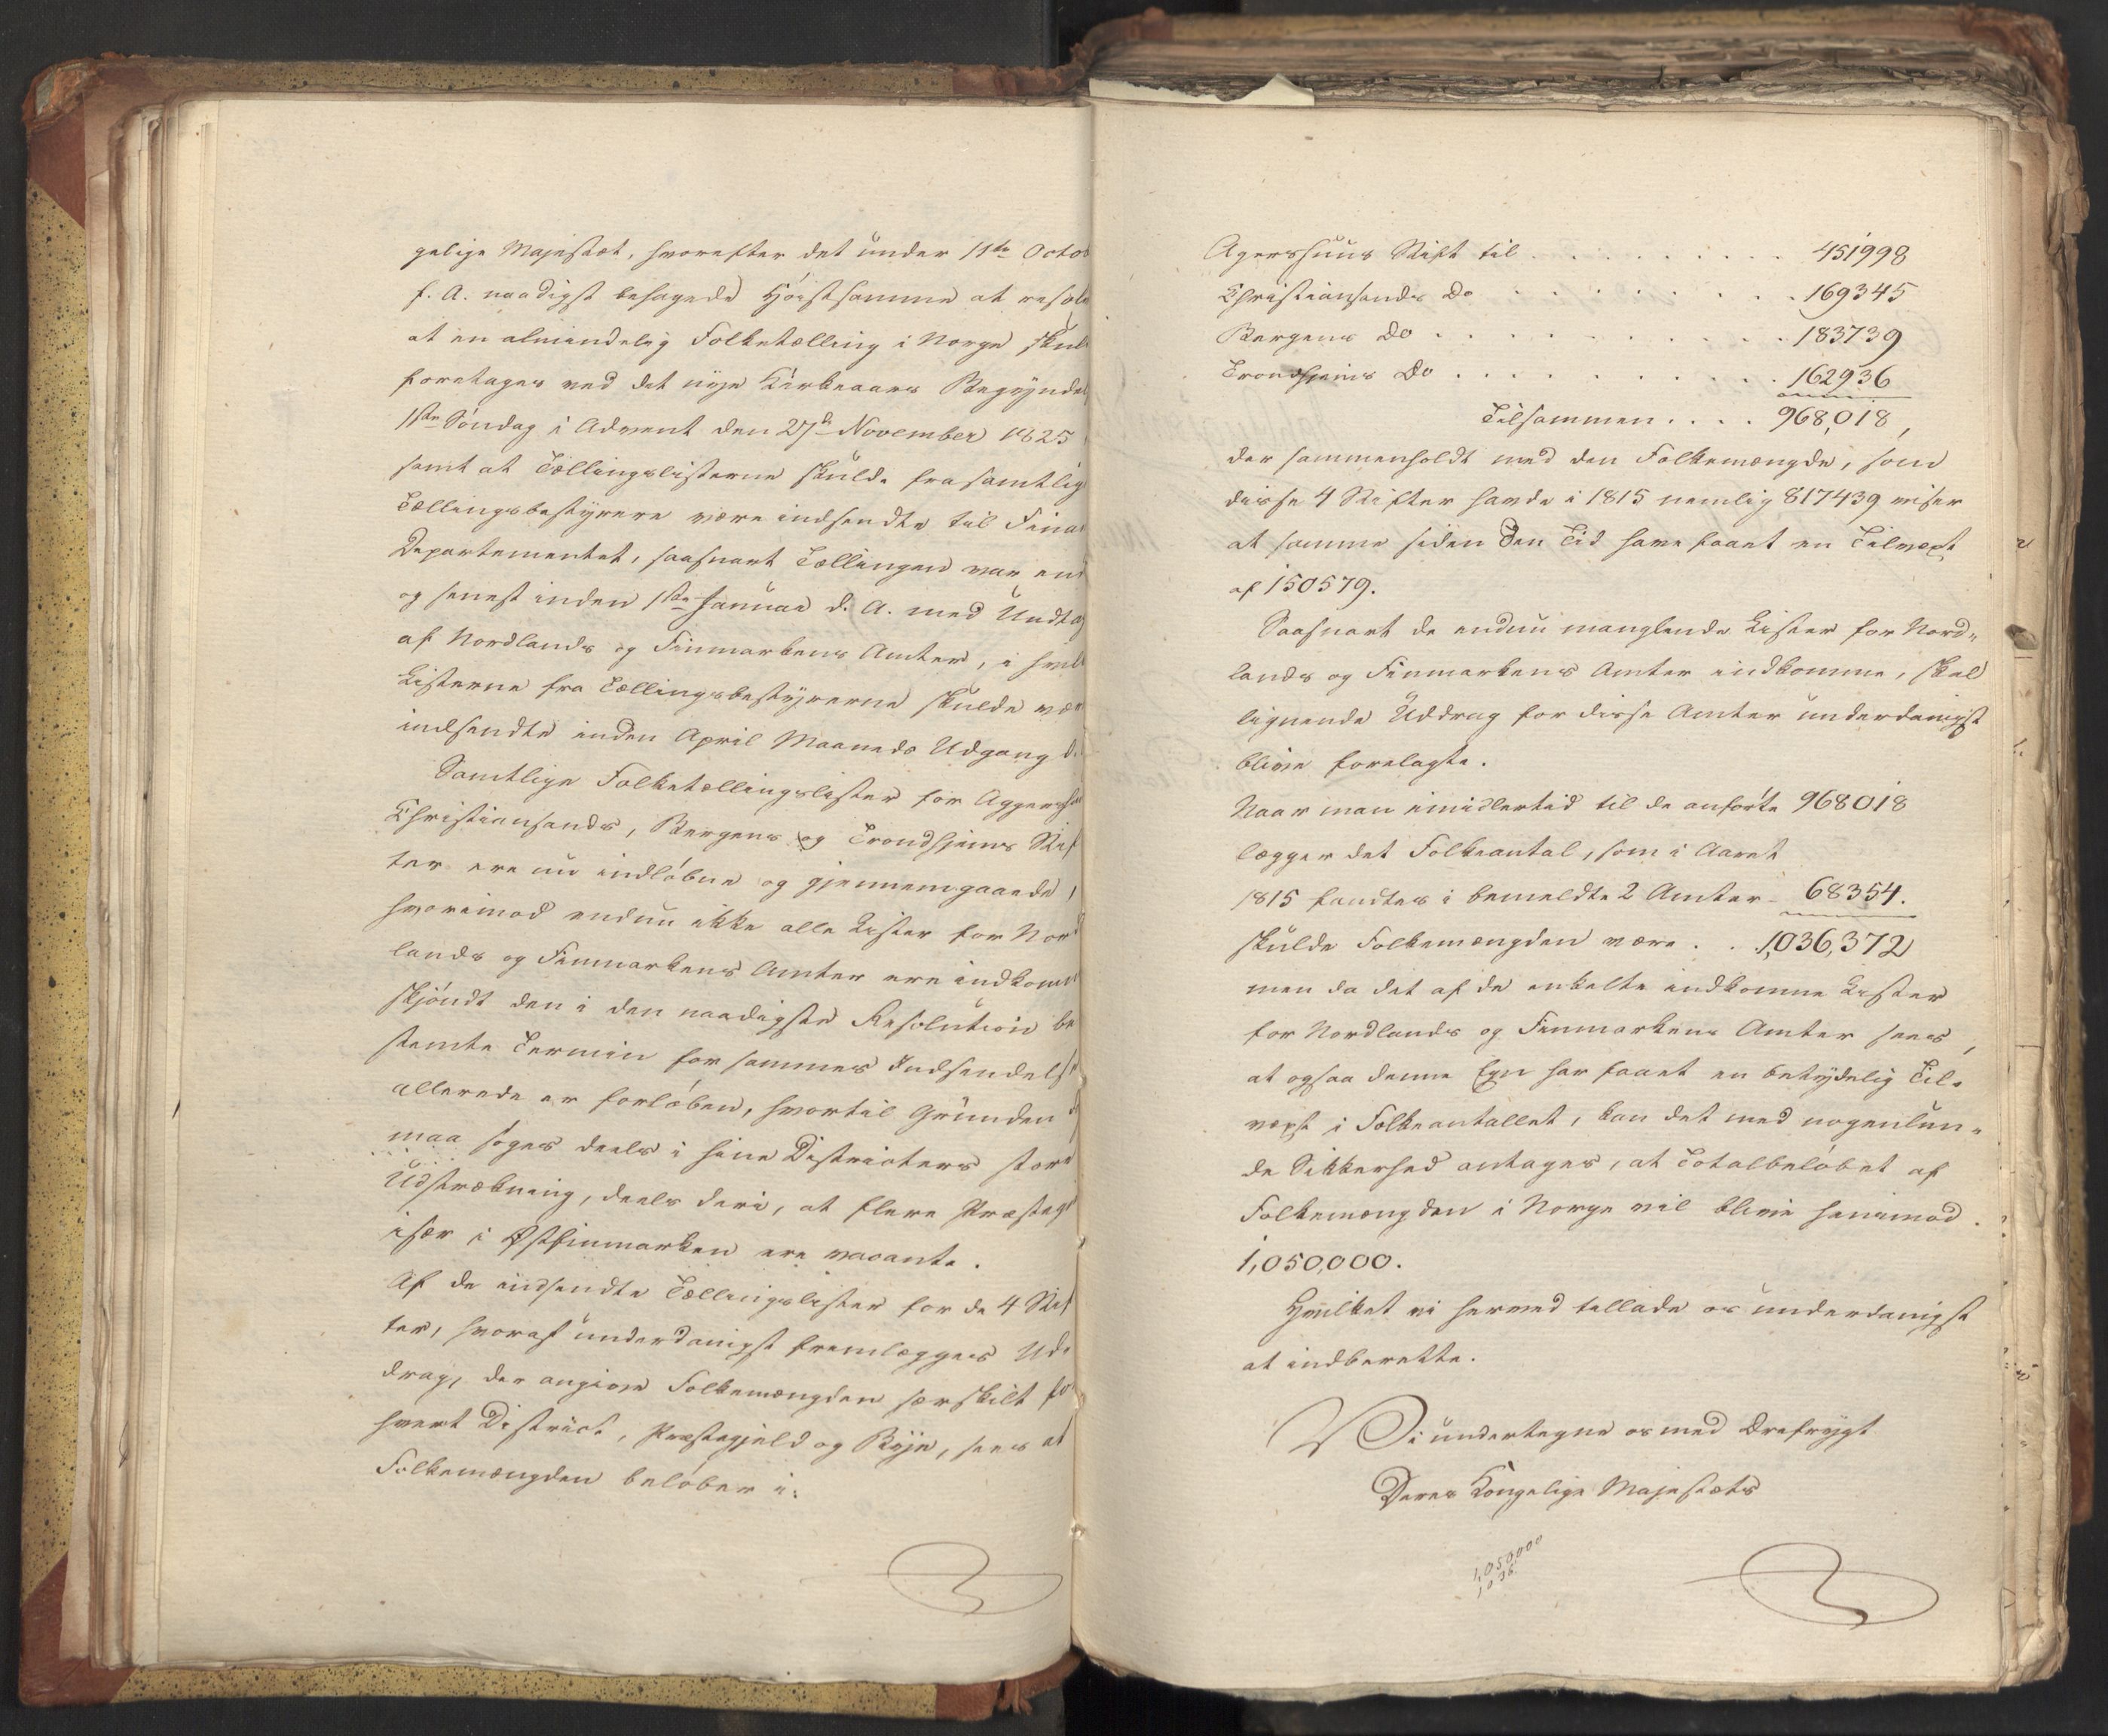 gelige Majestæt, hvorefter det under 11te Octob
f. A. naadigst behagede Høistsamme at resolv
at en almindelig Folketælling i Norge skul
foretages ved det nye Kirkeaars Begyndel
1ste Søndag i Advent den 27de November 1825
samt at Tællingslisterne skulde fra samtlig
Tællingsbestyrere være indsendte til Finan
Departementet, saasnart Tællingen var end
og senest inden 1ste Januar d. A. med Undtag
af Nordlands og Finmarkens Amter, i hvil
Listerne fra Tællingsbestyrerne skulde vær
indsendte inden April Maaneds Udgang d.
Samtlige Folketællingslister for Aggershu
Christiansands, Bergens og Trondhjems Stif
ter ere nu indløbne og gjennemgaaede,
hvorimod endnu ikke alle Lister for Nord
lands og Finmarkens Amter ere indkomne
skjøndt den i den naadigste Resolution be
stemte Termin for sammes Indsendelse
allerede er forløben, hvortil Grunden
maa søges deels i hine Districters store
Udstrækning, deels deri, at flere Præstegj
især i Østfinmarken ere vacante.
Af de indsendte Tællingslister for de 4 Stif
ter, hvoraf underdanigst fremlægges Ud-
drag, der angive Folkemængden særskilt fo
hvert District, Præstegjeld og Bye, sees at
Folkemængden beløber i:
Agershuus Stift til . . . . . . . . . 451998
Christiansands Do . . . . . . . . . 169345
Bergens Do . . . . . . . . . . . 183739
Trondhjems Do . . . . . . . . . . 162936
Tilsammen . . . . 968,018,
der sammenholdt med den Folkemængde, som
disse 4 Stifter havde i 1815 nemlig 817439 viser
at samme siden den Tid have faaet en Tilvext
af 150579.
Saasnart de endnu manglende Lister for Nord-
lands og Finmarkens Amter indkomme, skal
lignende Uddrag for disse Amter underdanigst
blive forelagte.
Naar man imidlertid til de anførte 968018
lægger det Folkeantal, som i Aaret
1815 fandtes i bemeldte 2 Amter - 68354.
skulde Folkemængden være . . 1,036,372
men da det af de enkelte indkomne Lister
for Nordlands og Finmarkens Amter sees,
at ogsaa denne Egn har faaet en betydelig Til-
vext i Folkeantallet, kan det med nogenlun-
de Sikkerhed antages, at Totalbeløbet af
Folkemængden i Norge vil blive henimod
1,050,000.
Hvilket vi herved tillade os underdanigst
at indberette.
Vi undertegne os med Ærefrygt
Deres Kongelige Majestæts
1,050,000
1,036